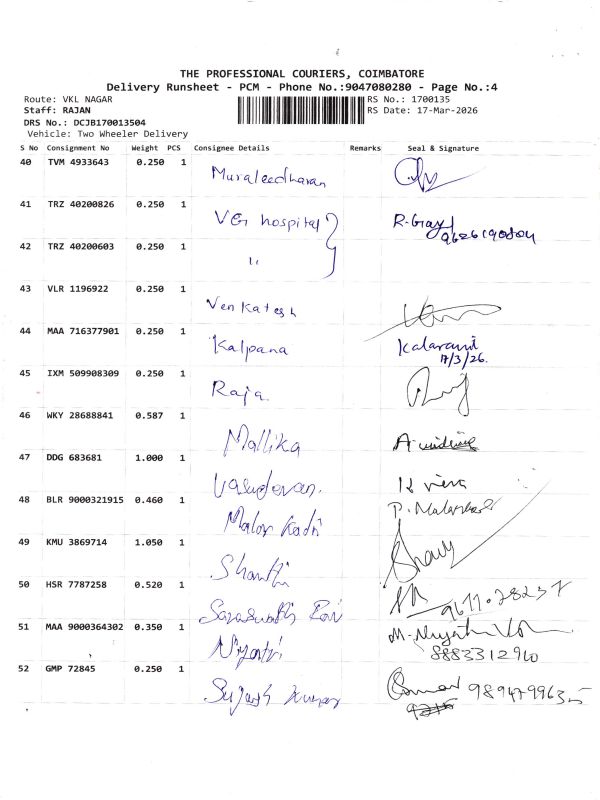 THE PROFESSIONAL COURIERS, COIMBATORE
Delivery Runsheet - PCM - Phone No.:9047080280 - Page No.:4
Route: VKL NAGAR RS No.: 1700135
Staff: RAJAN RS Date: 17-Mar-2026
DRS No.: DCJB170013504
Vehicle: Two Wheeler Delivery
S No Consignment No Weight PCS Consignee Details Remarks Seal & Signature
40 TVM 4933643 0.250 1 Muraleedharan
41 TRZ 40200826 0.250 1 VG hospital R. Gray
9626190804
42 TRZ 40200603 0.250 1 "
43 VLR 1196922 0.250 1 Venkatesh
44 MAA 716377901 0.250 1 Kalpana Kalarani
17/3/26.
45 IXM 509908309 0.250 1 Raja
46 WKY 28688841 0.587 1 Mallika
47 DDG 683681 1.000 1 Vasudevan.
48 BLR 9000321915 0.460 1 Malar Kodi
49 KMU 3869714 1.050 1 Shanthi
50 HSR 7787258 0.520 1 Saraswathi
51 MAA 9000364302 0.350 1
8883312910
52 GMP 72845 0.250 1 Kumar